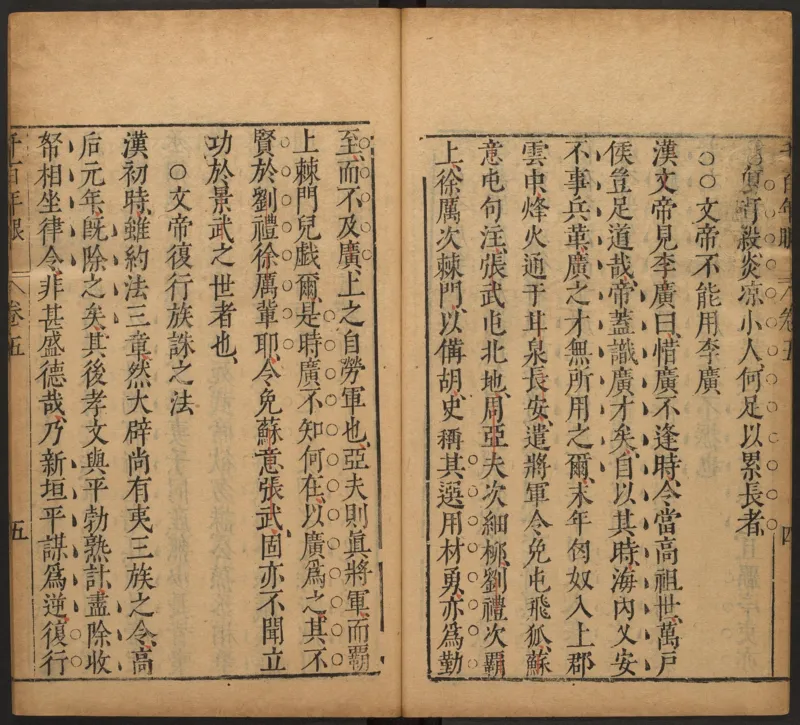 可殺炎凉小人何足以累長者
○○文帝不能用李廣
漢文帝見李廣曰惜廣不逢時令當高祖世萬戶
侯豈足道哉帝蓋識廣才矣自以其時海內乂安
不事兵革廣之才無所用之爾末年匈奴入上郡
雲中烽火通于甘泉長安遣將軍令免屯飛狐蘇
意屯句注張武屯北地周亞夫次細柳劉禮次覇
上徐厲次棘門以備胡史稱其選用材勇亦爲勤
四
至而不及廣上之自勞軍也亞夫則眞將軍而覇
上棘門兒戲爾是時廣不知何在以廣爲之其不
賢於劉禮徐厲輩耶令免蘇意張武固亦不聞立
功於景武之世者也
○文帝復行族誅之法
漢初時雖約法三章然大辟尚有夷三族之令高
后元年旣除之矣其後孝文與平勃熟計盡除收
帑相坐律令非甚盛德哉乃新垣平謀爲逆復行
千百年眼 卷五 五